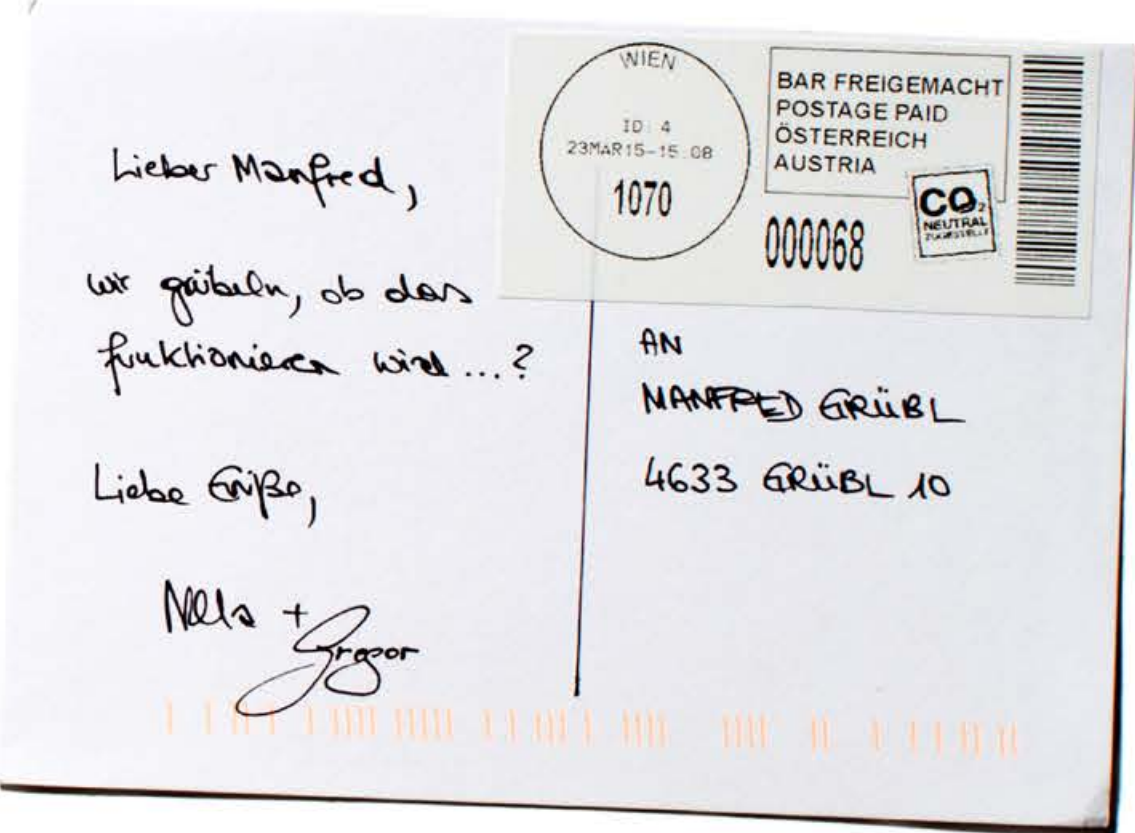 Lieber Manfred,
wir grübeln, ob das
funktionieren wird...?
Liebe Grüße,
Nela + Gregor
WIEN
ID: 4
23MAR15-15:08
1070
BAR FREIGEMACHT
POSTAGE PAID
ÖSTERREICH
AUSTRIA
000068
CO2
NEUTRAL
ZUGESTELLT
AN
MANFRED GRÜBL
4633 GRÜBL 10